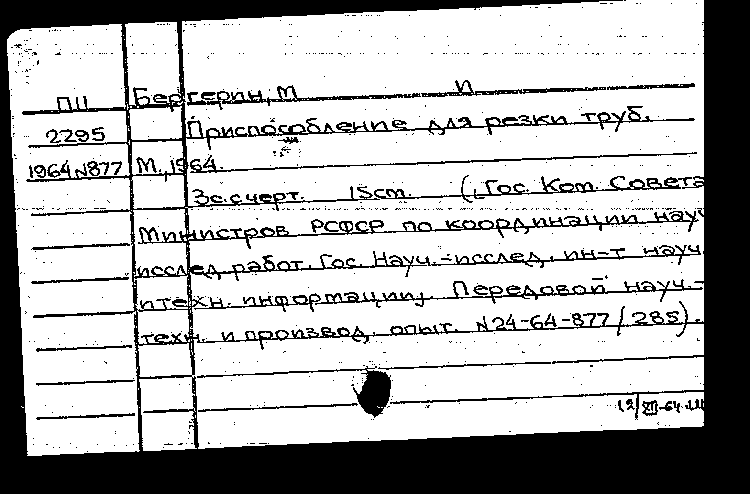 ПII Бергерин, М П
2295 Приспособление для резки труб.
1964 N877 М., 1964.
3 с. с черт. 15см. (Гос. Ком. Совета
Министров РСФСР по координации науч
исслед. работ. Гос. Науч.-исслед. ин-т науч.
итехн. информации. Передовой науч.-
техн. и производ. опыт. N24-64-877/285).
12/XII-64